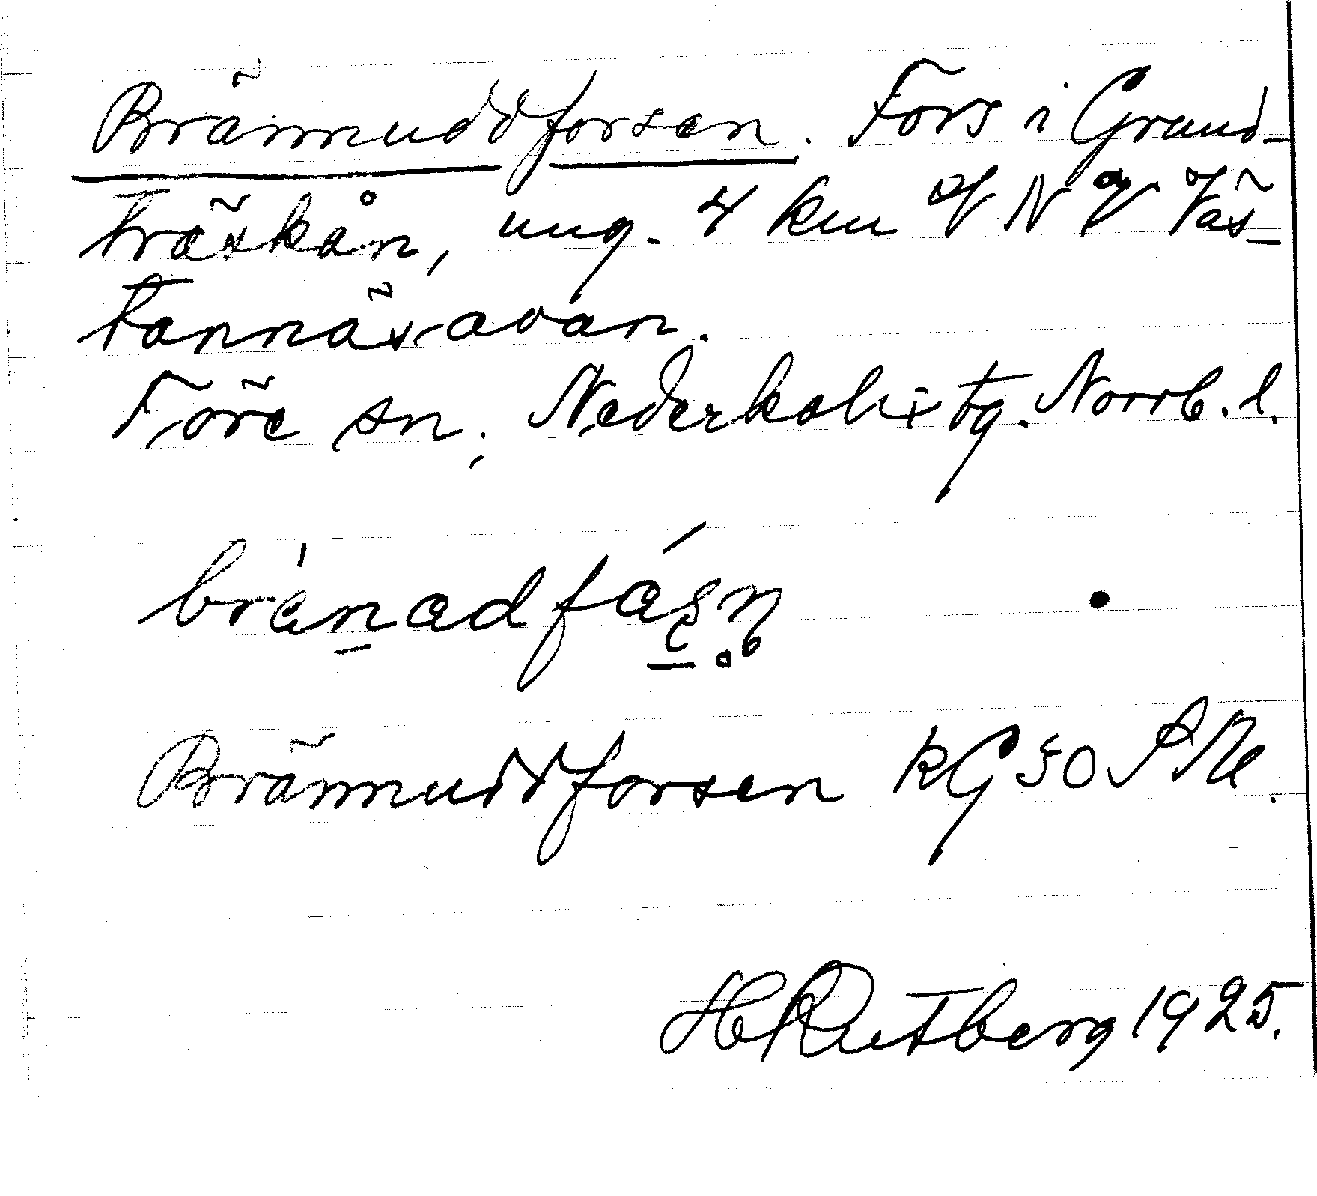 Brännuddforsen. Fors i Grund-
träskån, ung. 4 km V N V Väs-
tannäsavan.
Töre sn, Nederkalix tg. Norrb. l.
Brännuddforsen kG 50
H Rutberg 1925.